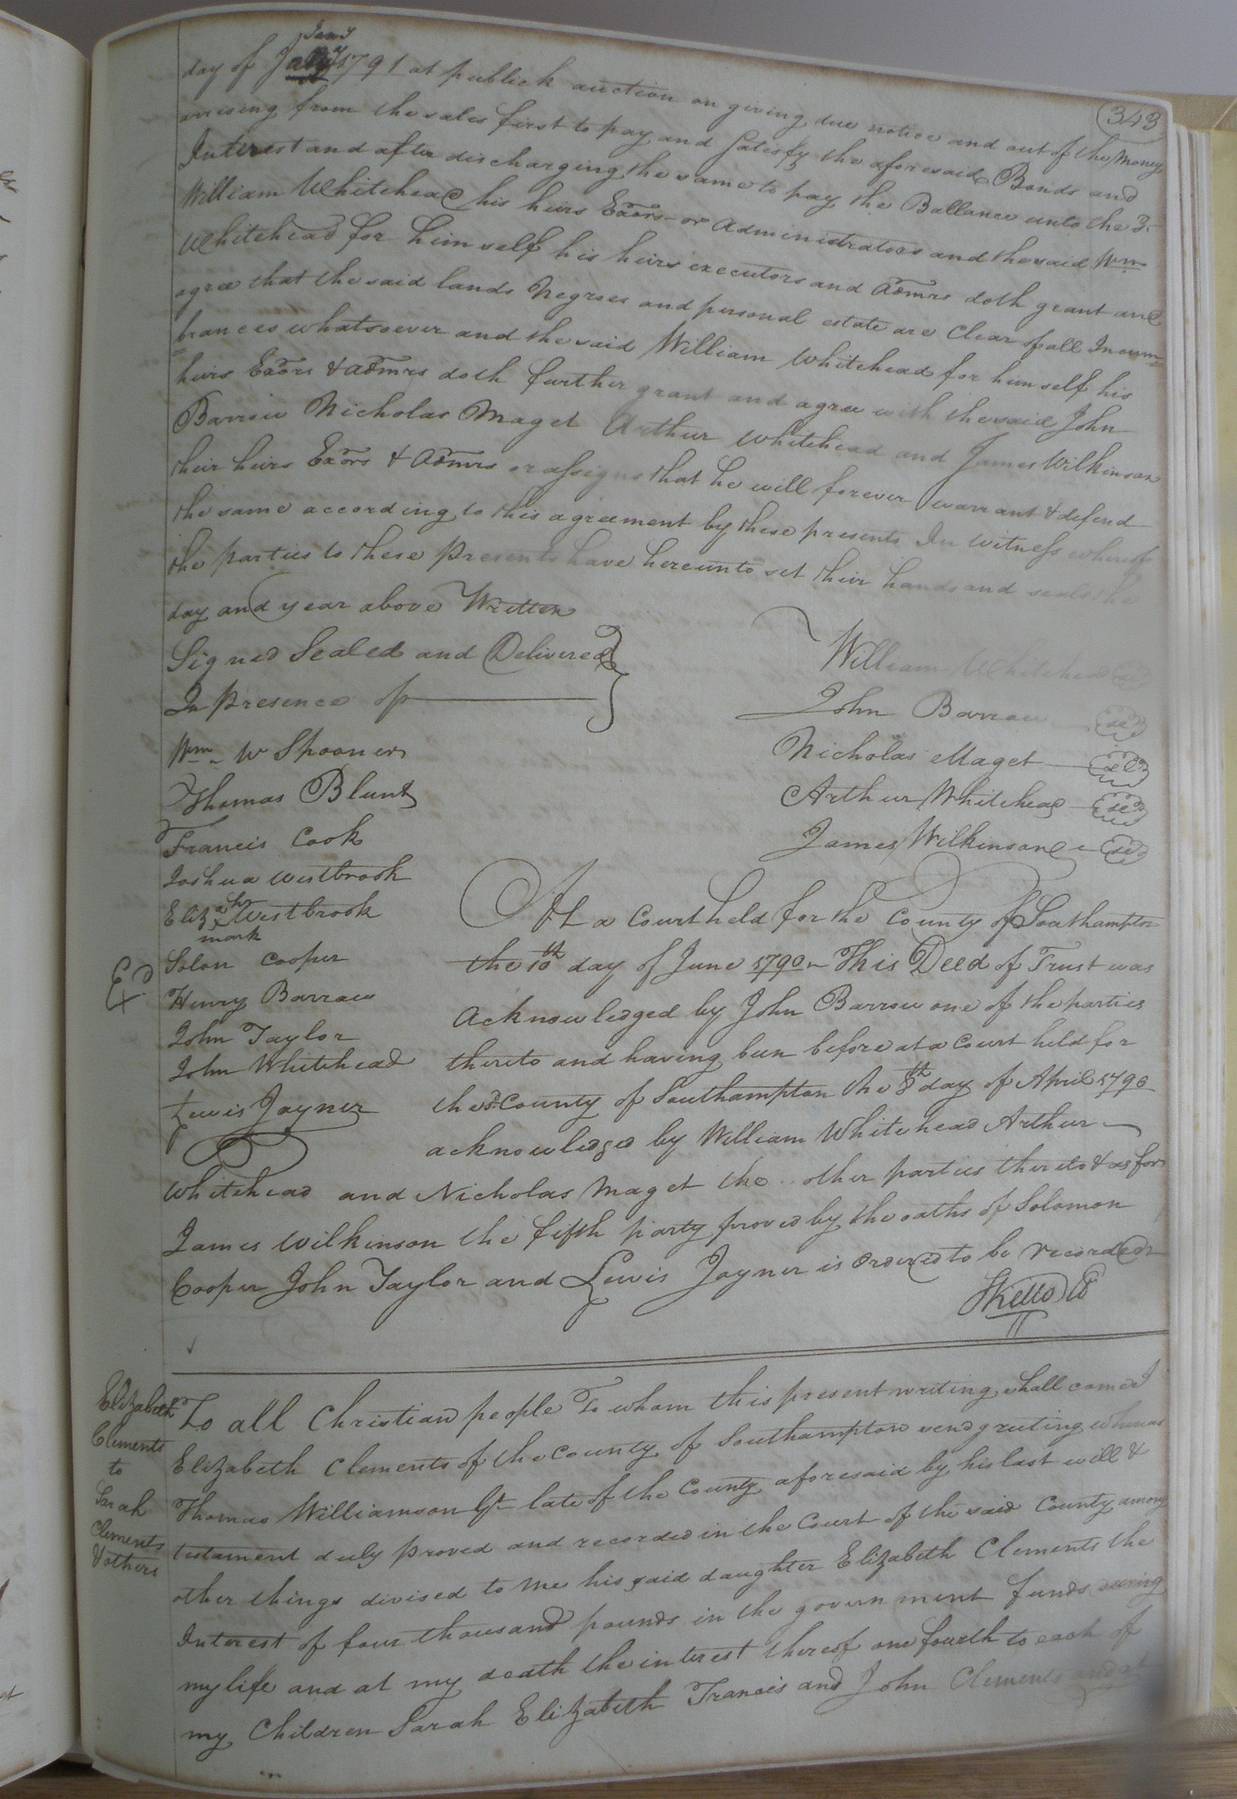 343
day of Jany 1791 at publick auction on giving due notice and out of the Money
arrising from the sales first to pay and satisfy the aforesaid Bonds and
Interest and after discharging the same to pay the Ballance unto the sd.
William Whitehead his heirs Exors or administrators and the said Wm
Whitehead for himself his heirs executors and admrs doth grant and
agree that the said lands Negroes and personal estate are Clear of all Incum=
=brances whatsoever and the said William Whitehead for himself his
heirs Exors & admrs doth further grant and agree with the said John
Barrow Nicholas Maget Arthur Whitehead and James Wilkinson
their heirs Exors & admrs or assigns that he will forever warrant & defend
the same according to this agreement by these presents In witness whereof
the parties to these presents have hereunto set their hands and seals the
day and year above Written
Signed Sealed and Delivered
In presence of
William Whitehead
John Barrow
Nicholas Maget
Arthur Whitehead
James Wilkinson
Wm W Spooner
Thomas Blunt
Francis Cook
Joshua Westbrook
Elizath Westbrook
mark
Solon Cooper
Henry Barrow
John Taylor
John Whitehead
Lewis Joyner
Exd.
At a Court held for the County of Southampton
the 10th day of June 1790 This Deed of Trust was
acknowledged by John Barrow one of the parties
thereto and having been before at a Court held for
the sd County of Southampton the 8th day of April 1790
acknowledged by William Whitehead Arthur
Whitehead and Nicholas Maget the other parties thereto & as for
James Wilkinson the fifth party proved by the oaths of Solomon
Cooper John Taylor and Lewis Joyner is ordered to be recorded
SKello Cl
Elizabeth
Clements
to
Sarah
Clements
& others
To all Christian people To whom this present writing shall come I
Elizabeth Clements of the County of Southampton send greeting whereas
Thomas Williamson Gt late of the County aforesaid by his last will &
testament duly proved and recorded in the Court of the said County among
other things devised to me his said daughter Elizabeth Clements the
Interest of four thousand pounds in the government funds during
my life and at my death the interest thereof one fourth to each of
my Children Sarah Elizabeth Francis and John Clements and at